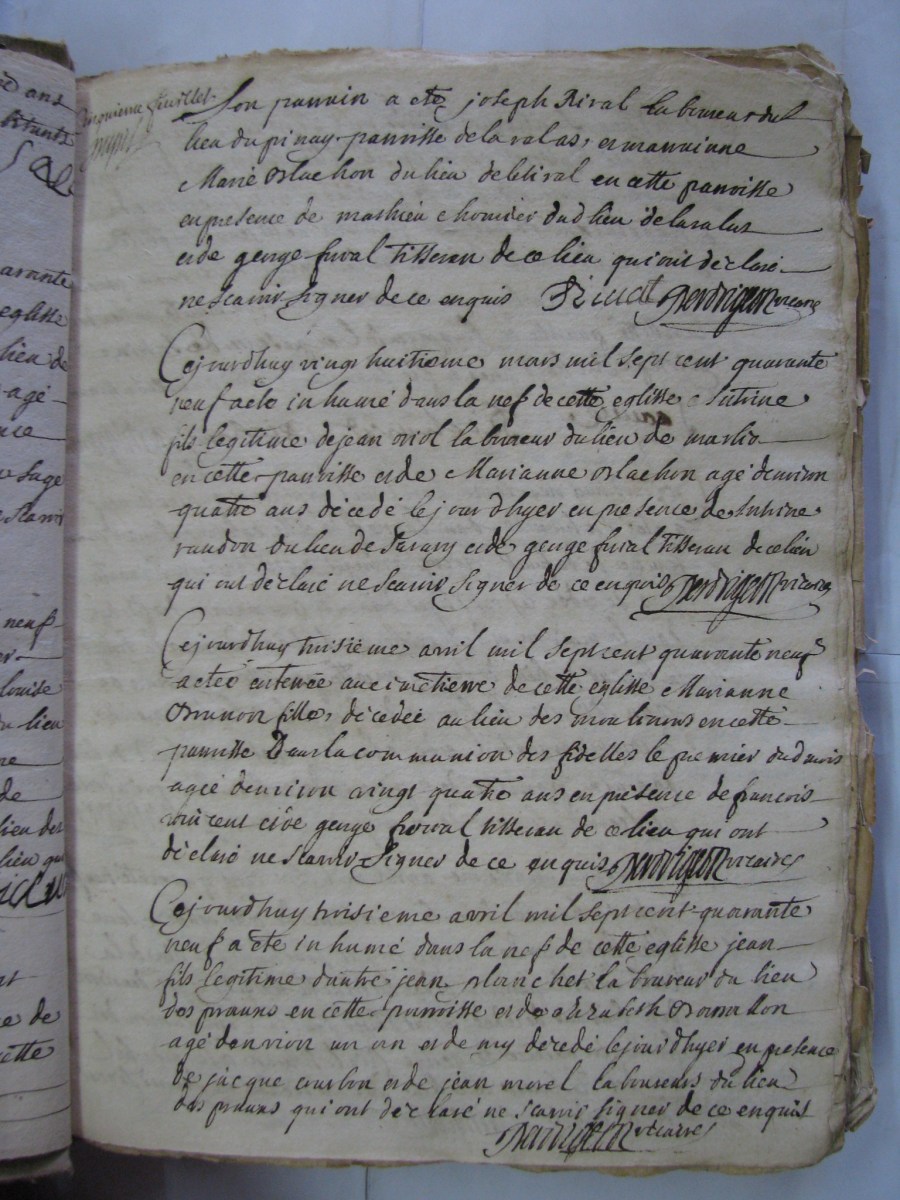 d ans
bitants
neuvieme feuillet
Son parrain a ete joseph Rival laboureur du
lieu du pinay parroisse de lavalas, et marrainne
Marie orlachon du lieu de en cette parroisse
en presence de mathieu chomier dud lieu de lavalas
et de george fural tisseran de ce lieu qui ont declaré
ne scavoir signer de ce enquis vicaire
Cejourdhuy vingt huitieme mars mil sept cent quarante
neuf a ete inhumé dans la nef de cette eglisse
fils legitime de jean oriol laboureur du lieu de marlio
en cette parroisse et de Marianne orlachon agé denviron
quatre ans décedé le jour dhyer en presence de
du lieu de et de george fural tisseran de ce lieu
qui ont declaré ne scavoir signer de ce enquis vicaire
Cejourdhuy troisieme avril mil sept cent quarante neuf
a eté enterrée au cimetierre de cette eglisse Marianne
fille décedée au lieu des en cette
parroisse dans la communion des fidelles le premier dud mois
agée denviron vingt quatre ans en présence de francois
vincent et de george fural tisseran de ce lieu qui ont
declaré ne scavoir signer de ce enquis vicaire
Cejourdhuy troisieme avril mil sept cent quarante
neuf a ete inhumé dans la nef de cette eglisse jean
fils legitime dautre jean planchet laboureur du lieu
des en cette parroisse et de
agé denviron un an et demy décedé le jour dhyer en presence
de jacque courbon et de jean morel laboureurs du lieu
des qui ont déclaré ne scavoir signer de ce enquis
vicaire
arante
eglisse
lieu de
agé
neuf
louise
du lieu
de
lieu des
lieu qui
ce de
cette